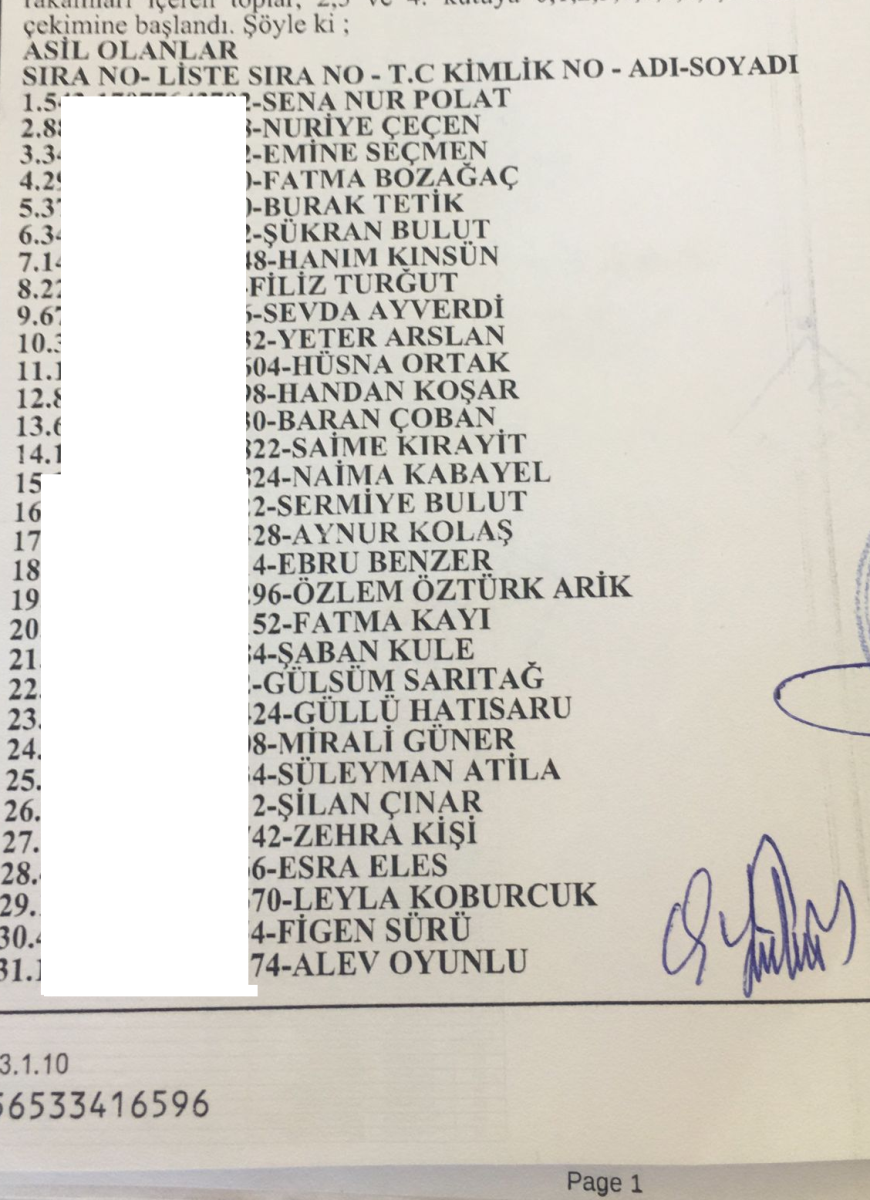 çekimine başlandı. Şöyle ki ;
ASİL OLANLAR
SIRA NO- LİSTE SIRA NO - T.C KİMLİK NO - ADI-SOYADI
1.5 -SENA NUR POLAT
2.8 -NURİYE ÇEÇEN
3.3 -EMİNE SEÇMEN
4.2 -FATMA BOZAĞAÇ
5.3 -BURAK TETİK
6.3 -ŞÜKRAN BULUT
7.1 48-HANIM KINSÜN
8.2 -FİLİZ TURĞUT
9.6 -SEVDA AYVERDİ
10. 32-YETER ARSLAN
11. 604-HÜSNA ORTAK
12. 98-HANDAN KOŞAR
13. 30-BARAN ÇOBAN
14. 322-SAİME KIRAYİT
15 324-NAİMA KABAYEL
16 2-SERMİYE BULUT
17 28-AYNUR KOLAŞ
18 4-EBRU BENZER
19 96-ÖZLEM ÖZTÜRK ARİK
20. 52-FATMA KAYI
21. 4-ŞABAN KULE
22. -GÜLSÜM SARITAĞ
23. 24-GÜLLÜ HATISARU
24. 8-MİRALİ GÜNER
25. 4-SÜLEYMAN ATİLA
26. 2-ŞİLAN ÇINAR
27. 42-ZEHRA KİŞİ
28. 6-ESRA ELES
29. 70-LEYLA KOBURCUK
30. 4-FİGEN SÜRÜ
31. 74-ALEV OYUNLU
3.1.10
56533416596
Page 1